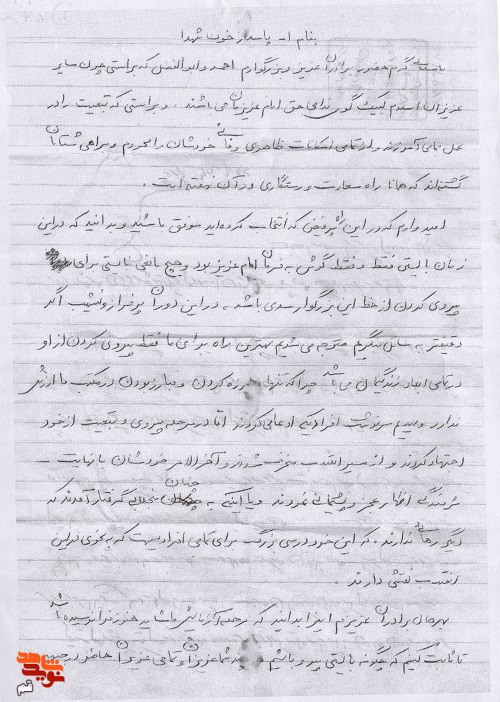 بنام ا... پاسدار خون شهدا
با سلامی گرم حضور برادران عزیز و بزرگوارم احمد و ابوالفضل که براستی چون سایر
عزیزان اسلام لبیک گوی ندای حق امام عزیزمان می باشند ، و براستی که تبعیت را در
عمل بما می آموزند و از تمامی امکانات ظاهری رفاهی خودشان را محروم و براهی شتابان
گشته‌اند که همانا راه سعادت و رستگاری در آن نهفته است .
امیدوارم که در این راه پرفیض که انتخاب کرده‌اید موفق باشید و بدانید که در این
زمان بایستی فقط و فقط گوش به فرمان امام عزیز بود و هیچ مانعی نبایستی برای ما
پیروی کردن از خط این بزرگوار سدی باشد . در این دوران پر فراز و نشیب اگر
دقیقتر به مسائل بنگریم متوجه می شویم بهترین راه برای ما فقط پیروی کردن از او
در تمامی ابعاد زندگیمان می باشد چرا که تنها مبارزه کردن و مبارز بودن در مکتب ما ارزش
ندارد و دیدیم سرنوشت افرادیکه ادعا می کردند اما در مرحله پیروی و تبعیت از خود
اجتهاد کردند و از مسیر انقلاب منحرف شدند و آخرالامر خودشان با نهایت
شرمندگی اظهار عجز و پشیمانی نمودند و یا اینکه به چنان منجلابی گرفتار آمدند که
دیگر رهائی ندارند . که این خود درسی بزرگ برای تمامی افرادیست که به نحوی در این
انقلاب نقشی دارند .
بهرحال برادران عزیزم این را بدانید که مرحله آزمایش ما شاید هنوز فرا نرسیده باشد
تا ثابت کنیم که چگونه بایستی پیرو باشیم و شما عزیزان و تمامی عزیزان حاضر در جبهه
نوید شاهد
قم